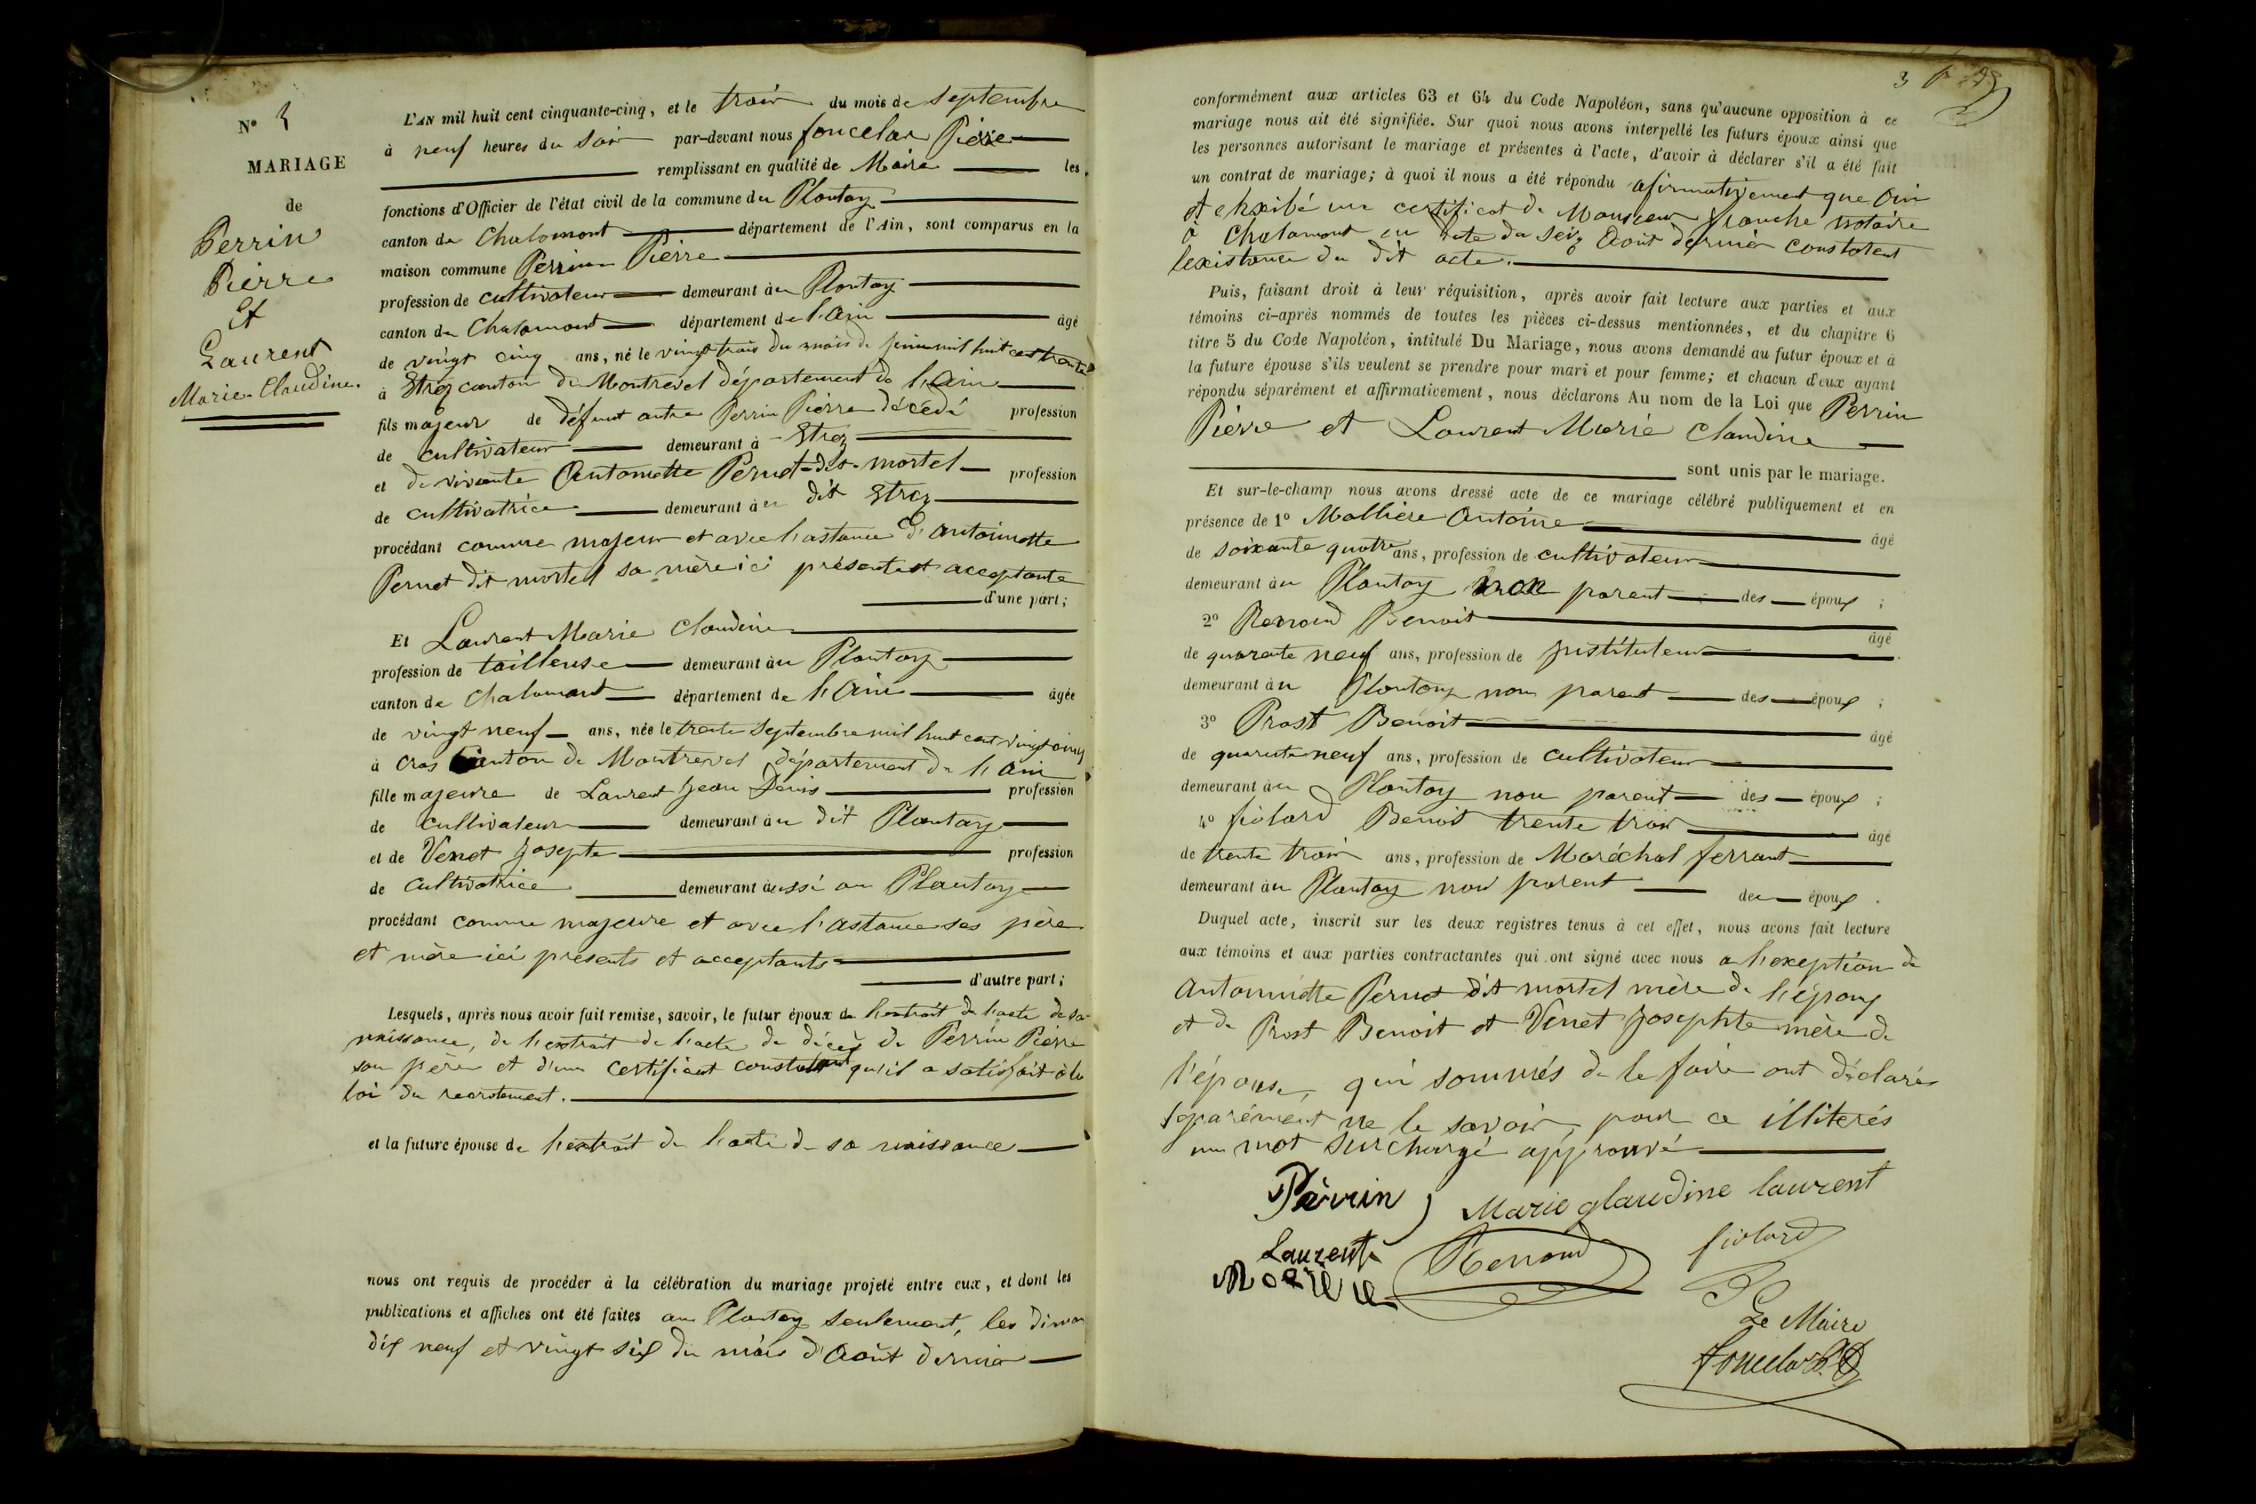 N° 3
MARIAGE
de
Perrin
Pierre
Et
Laurent
Marie Claudine.
L'AN mil huit cent cinquante-cinq, et le trois du mois de septembre
à neuf heures du soir par-devant nous foncelas Pierre
remplissant en qualité de Maire les
fonctions d'Officier de l'état civil de la commune du Plantay
canton de Chalamont département de l'Ain, sont comparus en la
maison commune Perrin Pierre
profession de cultivateur demeurant au Plantay
canton de Chalamont département de l'Ain âgé
de vingt cinq ans, né le vingt trois du mois de mil huit cent trente
à Etrez canton de Montrevel département de l'Ain
fils majeur de défunt autre Perrin Pierre décédé profession
de cultivateur demeurant à Etrez
et de vivante Antoinette Pernet dit mortel profession
de cultivatrice demeurant au dit Etrez
procédant comme majeur et avec l'astance d'Antoinette
Pernet dit mortel sa mère ici présente et acceptante
d'une part;
Et Laurent Marie Claudine
profession de tailleuse demeurant au Plantay
canton de Chalamont département de l'Ain âgée
de vingt neuf ans, née le trente septembre mil huit cent vingt cinq
à Cras canton de Montrevel département de l'Ain
fille majeure de Laurent Jean Denis profession
de cultivateur demeurant au dit Plantay
et de Venet Josepte profession
de cultivatrice demeurant aussi au Plantay
procédant comme majeure et avec l'astance ses père
et mère ici présents et acceptants
d'autre part;
Lesquels, après nous avoir fait remise, savoir, le futur époux de l'extrait de l'acte de sa
naissance, de l'extrait de l'acte de décès de Perrin Pierre
son père et d'un certificat constatant qu'il a satisfait à la
loi du recrutement.
et la future épouse de l'extrait de l'acte de sa naissance
nous ont requis de procéder à la célébration du mariage projeté entre eux, et dont les
publications et affiches ont été faites au Plantay seulement, les diman
dix neuf et vingt six du mois d'Août dernier
3
conformément aux articles 63 et 64 du Code Napoléon, sans qu'aucune opposition à ce
mariage nous ait été signifiée. Sur quoi nous avons interpellé les futurs époux ainsi que
les personnes autorisant le mariage et présentes à l'acte, d'avoir à déclarer s'il a été fait
un contrat de mariage; à quoi il nous a été répondu afirmativement que Oui
et exhibé un certificat de Monsieur franche notaire
à Chalamont en date du seiz Août dernier constatent
lexistence du dit acte.
Puis, faisant droit à leur réquisition, après avoir fait lecture aux parties et aux
témoins ci-après nommés de toutes les pièces ci-dessus mentionnées, et du chapitre 6
titre 5 du Code Napoléon, intitulé Du Mariage, nous avons demandé au futur époux et à
la future épouse s'ils veulent se prendre pour mari et pour femme; et chacun d'eux ayant
répondu séparément et affirmativement, nous déclarons Au nom de la Loi que Perrin
Pierre et Laurent Marie Claudine
sont unis par le mariage.
Et sur-le-champ nous avons dressé acte de ce mariage célébré publiquement et en
présence de 1° Mollière Antoine âgé
de soixante quatre ans, profession de cultivateur
demeurant au Plantay non parent des époux ;
2° Renoud Benoit âgé
de quarante neuf ans, profession de instituteur
demeurant au Plantay non parent des époux ;
3° Prost Benoit âgé
de quarante neuf ans, profession de cultivateur
demeurant au Plantay non parent des époux ;
4° fiolard Benoit trente trois âgé
de trente trois ans, profession de Maréchal ferrant
demeurant au Plantay non parent des époux .
Duquel acte, inscrit sur les deux registres tenus à cet effet, nous avons fait lecture
aux témoins et aux parties contractantes qui ont signé avec nous a l'exeption de
Antoinette Pernet dit mortel mère de l'époux
et de Prost Benoit et Venet Josephte mère de
l'épouse, qui sommés de le faire ont déclarés
séparément ne le savoir, pour ce illiterés
un mot surchargé approuvé
Perrin Marie glaudine laurent
Laurent Renoud fiolard
Le Maire
foncelas